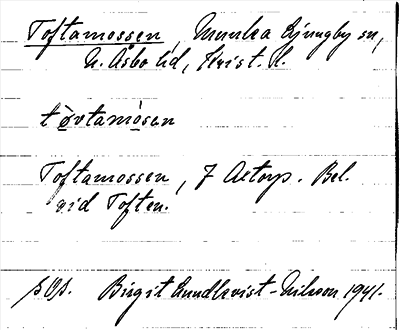 Toftamossen, Munka Ljungby sn,
N. Åsbo hd, Krist. l.
tåvtamåsen
Toftamossen, 7 Åstorp. Bel.
vid Toften.
Birgit Lundkvist-Nilsson 1941.